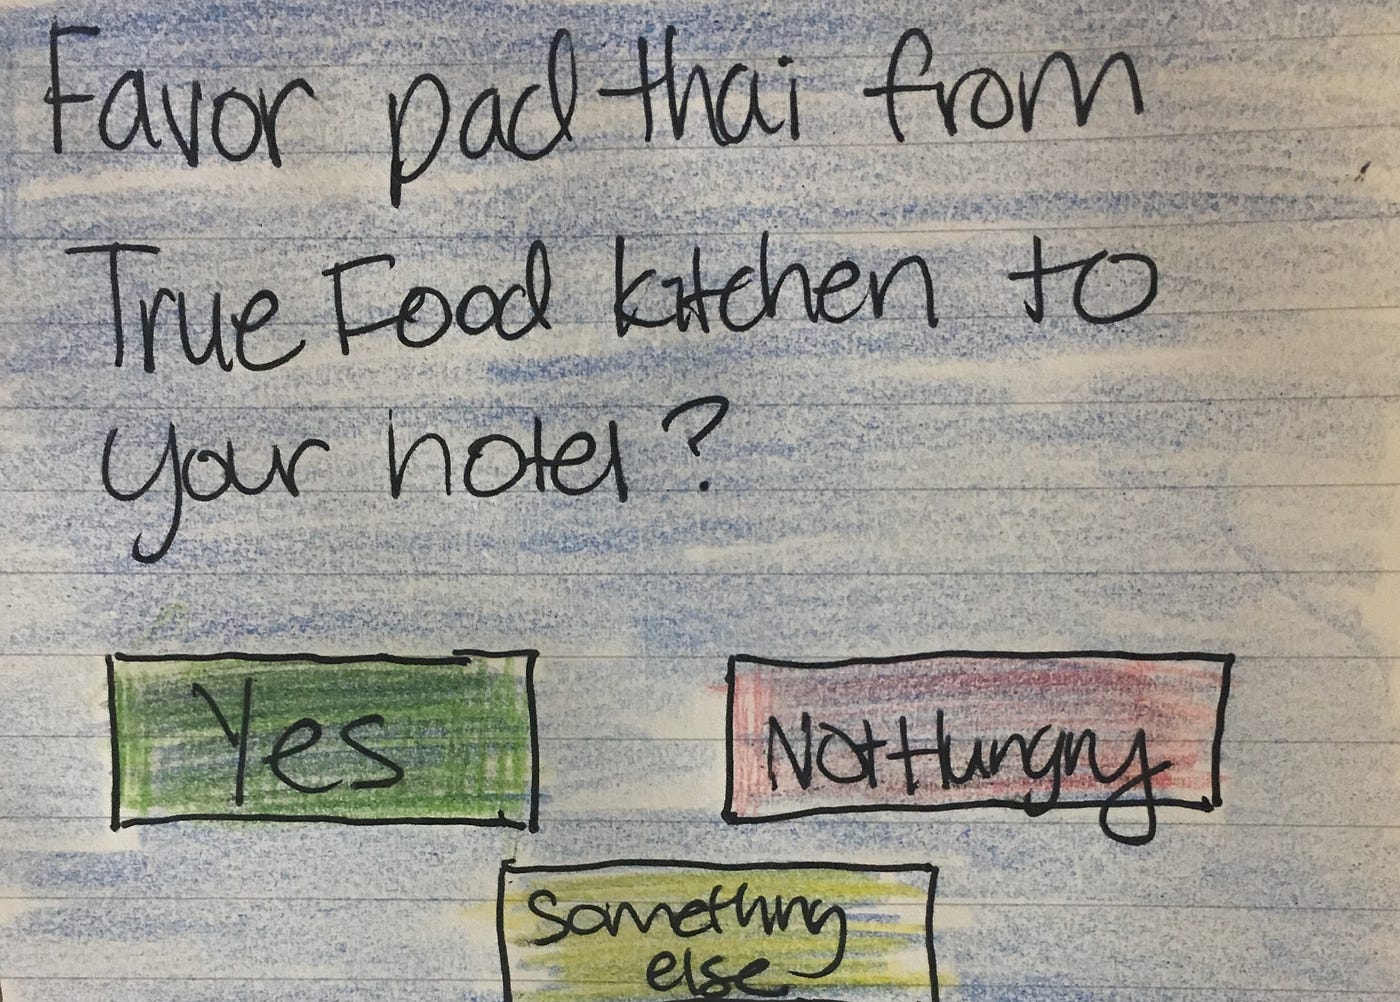 Favor pad thai from
True Food kitchen to
your hotel?
Yes
Not Hungry
Something
else